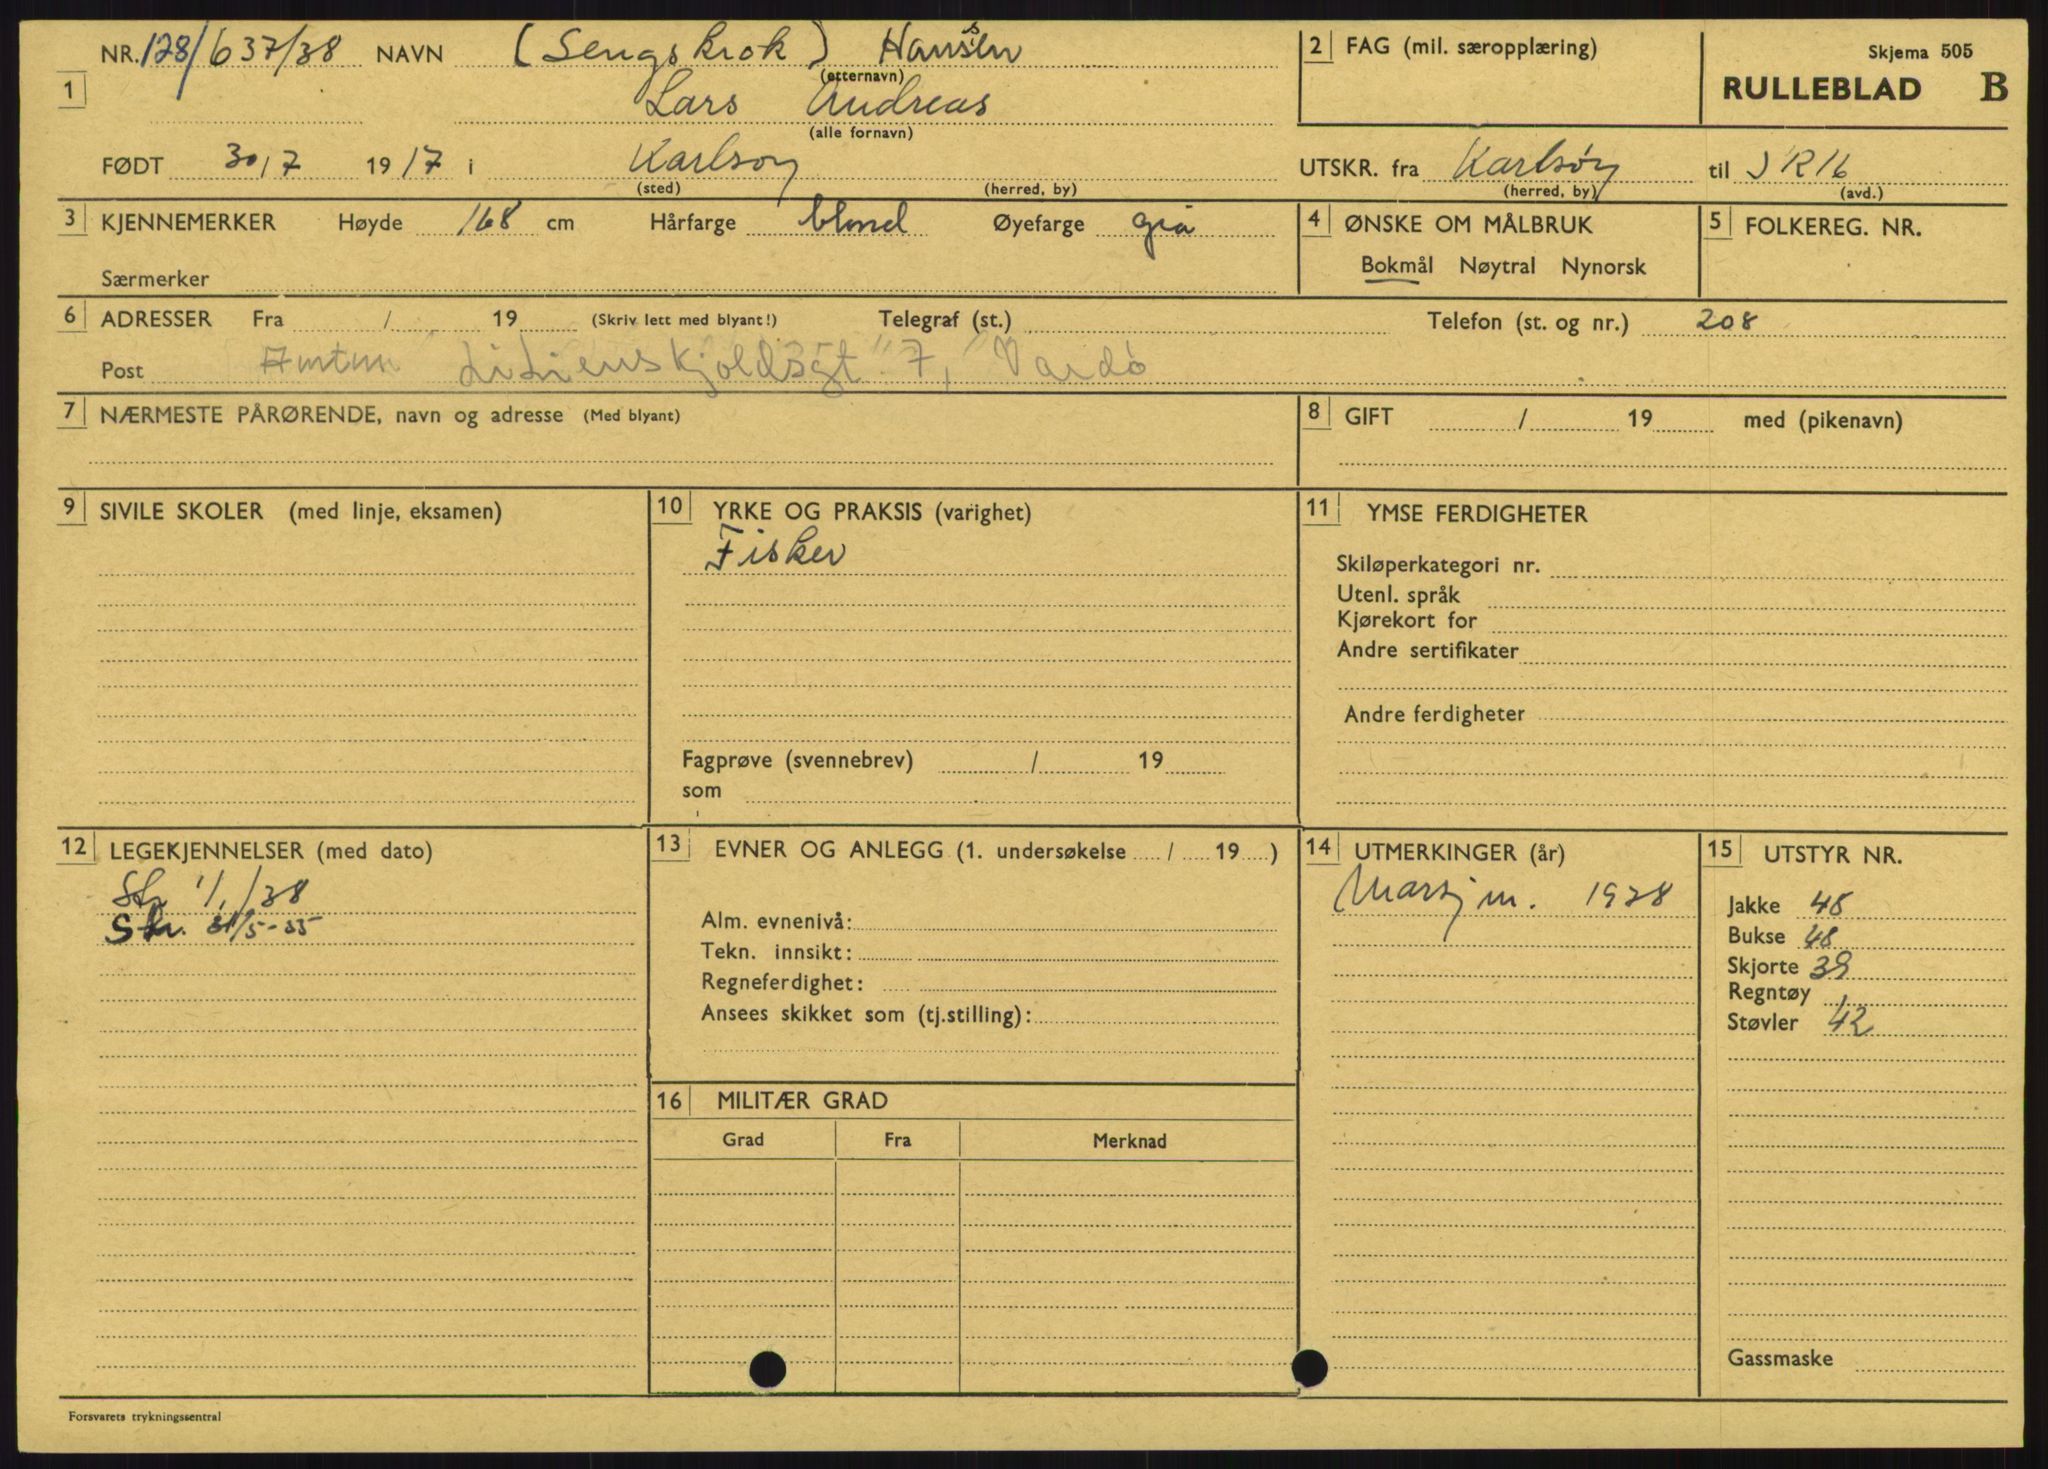 NR. 128/637/38 NAVN (Sengskrok) Hanssen
(etternavn)
1 Lars Andreas
(alle fornavn)
FØDT 30/7 1917 i Karlsøy
(sted) (herred, by)
2 FAG (mil. særopplæring)
Skjema 505
RULLEBLAD B
UTSKR. fra Karlsøy til JR16
(herred, by) (avd.)
3 KJENNEMERKER Høyde 168 cm Hårfarge blond Øyefarge grå
Særmerker
4 ØNSKE OM MÅLBRUK
Bokmål Nøytral Nynorsk
5 FOLKEREG. NR.
6 ADRESSER Fra / 19 (Skriv lett med blyant!) Telegraf (st.) Telefon (st. og nr.) 208
Post Lilienskjoldsgt 7, Vardø
7 NÆRMESTE PÅRØRENDE, navn og adresse (Med blyant)
8 GIFT / 19 med (pikenavn)
9 SIVILE SKOLER (med linje, eksamen)
10 YRKE OG PRAKSIS (varighet)
Fisker
Fagprøve (svennebrev) / 19
som
11 YMSE FERDIGHETER
Skiløperkategori nr.
Utenl. språk
Kjørekort for
Andre sertifikater
Andre ferdigheter
12 LEGEKJENNELSER (med dato)
Str 1/1/38
Str. 31/5-55
13 EVNER OG ANLEGG (1. undersøkelse / 19 )
Alm. evnenivå:
Tekn. innsikt:
Regneferdighet:
Ansees skikket som (tj.stilling):
14 UTMERKINGER (år)
m. 1938
15 UTSTYR NR.
Jakke 48
Bukse 48
Skjorte 39
Regntøy
Støvler 42
Gassmaske
16 MILITÆR GRAD
Grad Fra Merknad
Forsvarets trykningssentral